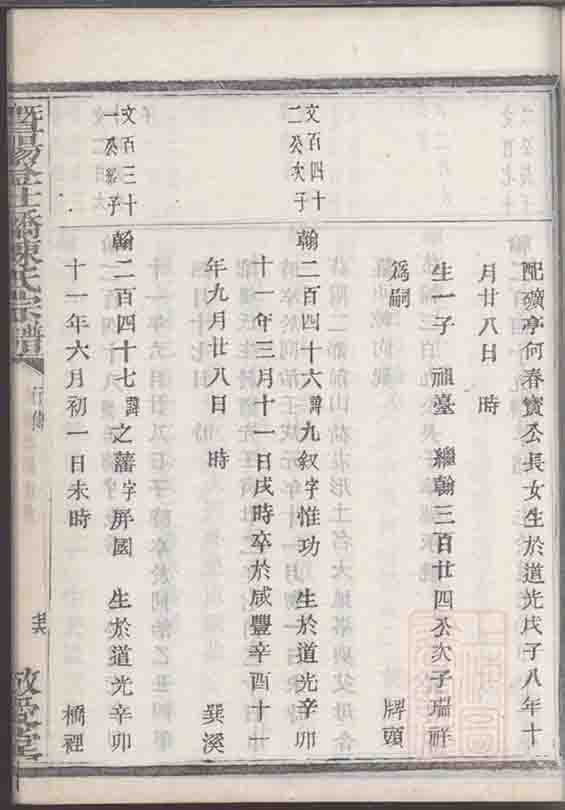 配礦亭何春寳公長女生於道光戊子八年十
月廿八日　時
生一子　祖臺　繼翰三百廿四公次子瑞祥
爲嗣　牌頭
文百四十
二公次子
翰二百四十六諱九叙字惟功　生於道光辛卯
十一年三月十一日戌時卒於咸豐辛酉十一
年九月廿八日　時　巽溪
文百三十
一公繼子
翰二百四十七諱之藩字屏園　生於道光辛卯
十一年六月初一日未時　橋裡
暨陽 橋陳氏宗譜
行傳
敬愛堂